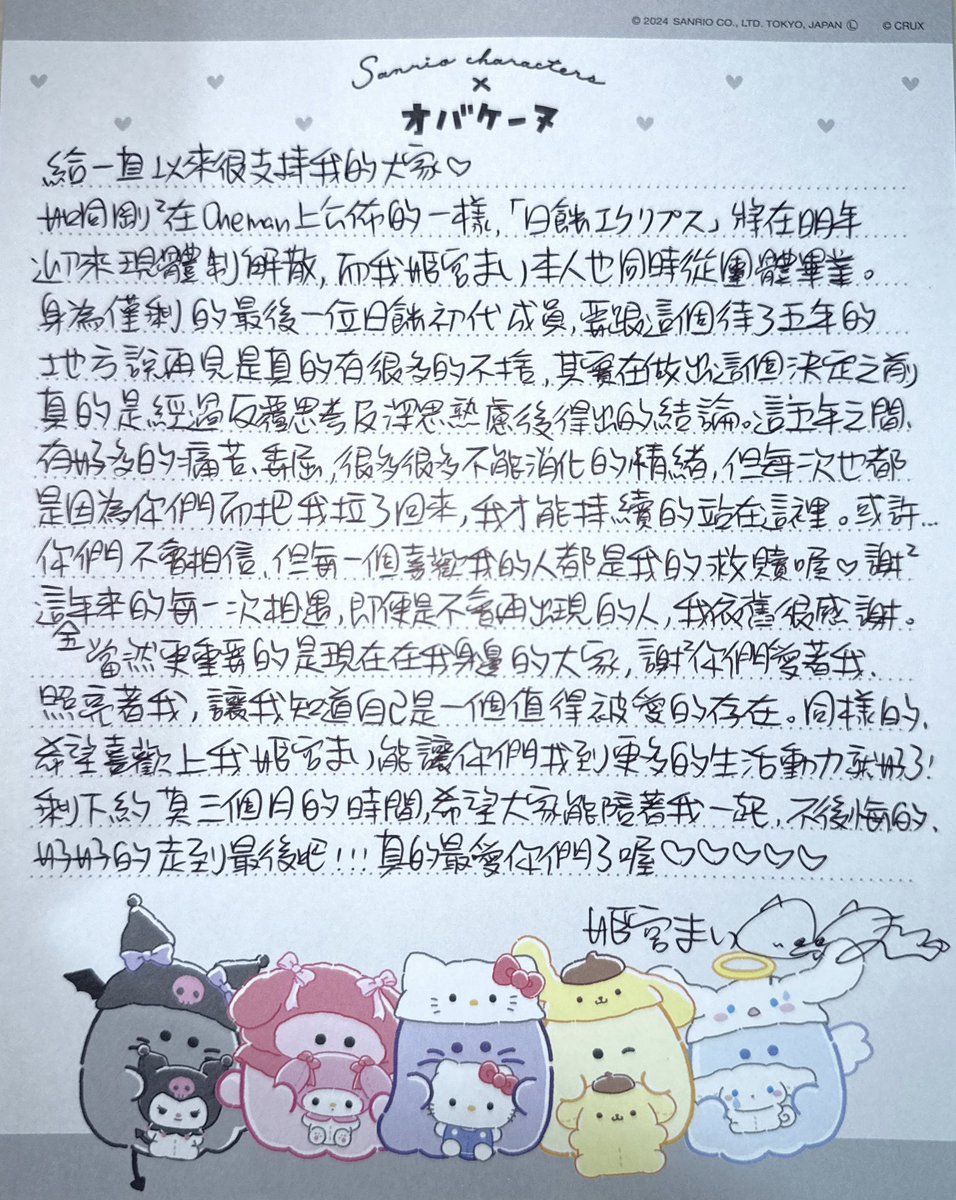 © 2024 SANRIO CO., LTD. TOKYO, JAPAN Ⓛ © CRUX
Sanrio characters
×
オバケーヌ
給一直以來很支持我的大家♡
如同剛²在Oneman上公佈的一樣,「日蝕エクリプス」將在明年
迎來現體制解散,而我姫宮まい本人也同時從團體畢業。
身為僅剩的最後一位日蝕初代成員,要跟這個待了五年的
地方說再見是真的有很多的不捨,其實在做出這個決定之前
真的是經過反覆思考及深思熟慮後得出的結論。這五年之間、
有好多的痛苦、委屈,很多很多不能消化的情緒,但每次也都
是因為你們而把我拉了回來,我才能持續的站在這裡。或許…
你們不會相信、但每一個喜歡我的人都是我的救贖喔♡謝²
這年來的每一次相遇,即便是不會再出現的人,我依舊很感謝。
當然更重要的是現在在我身邊的大家,謝²你們愛著我、
照亮著我,讓我知道自己是一個值得被愛的存在。同樣的、
希望喜歡上我姫宮まい能讓你們找到更多的生活動力就好了!
剩下約莫三個月的時間,希望大家能陪著我一起,不後悔的、
好好的走到最後吧!!!真的最愛你們了喔♡♡♡♡♡
姫宮まい